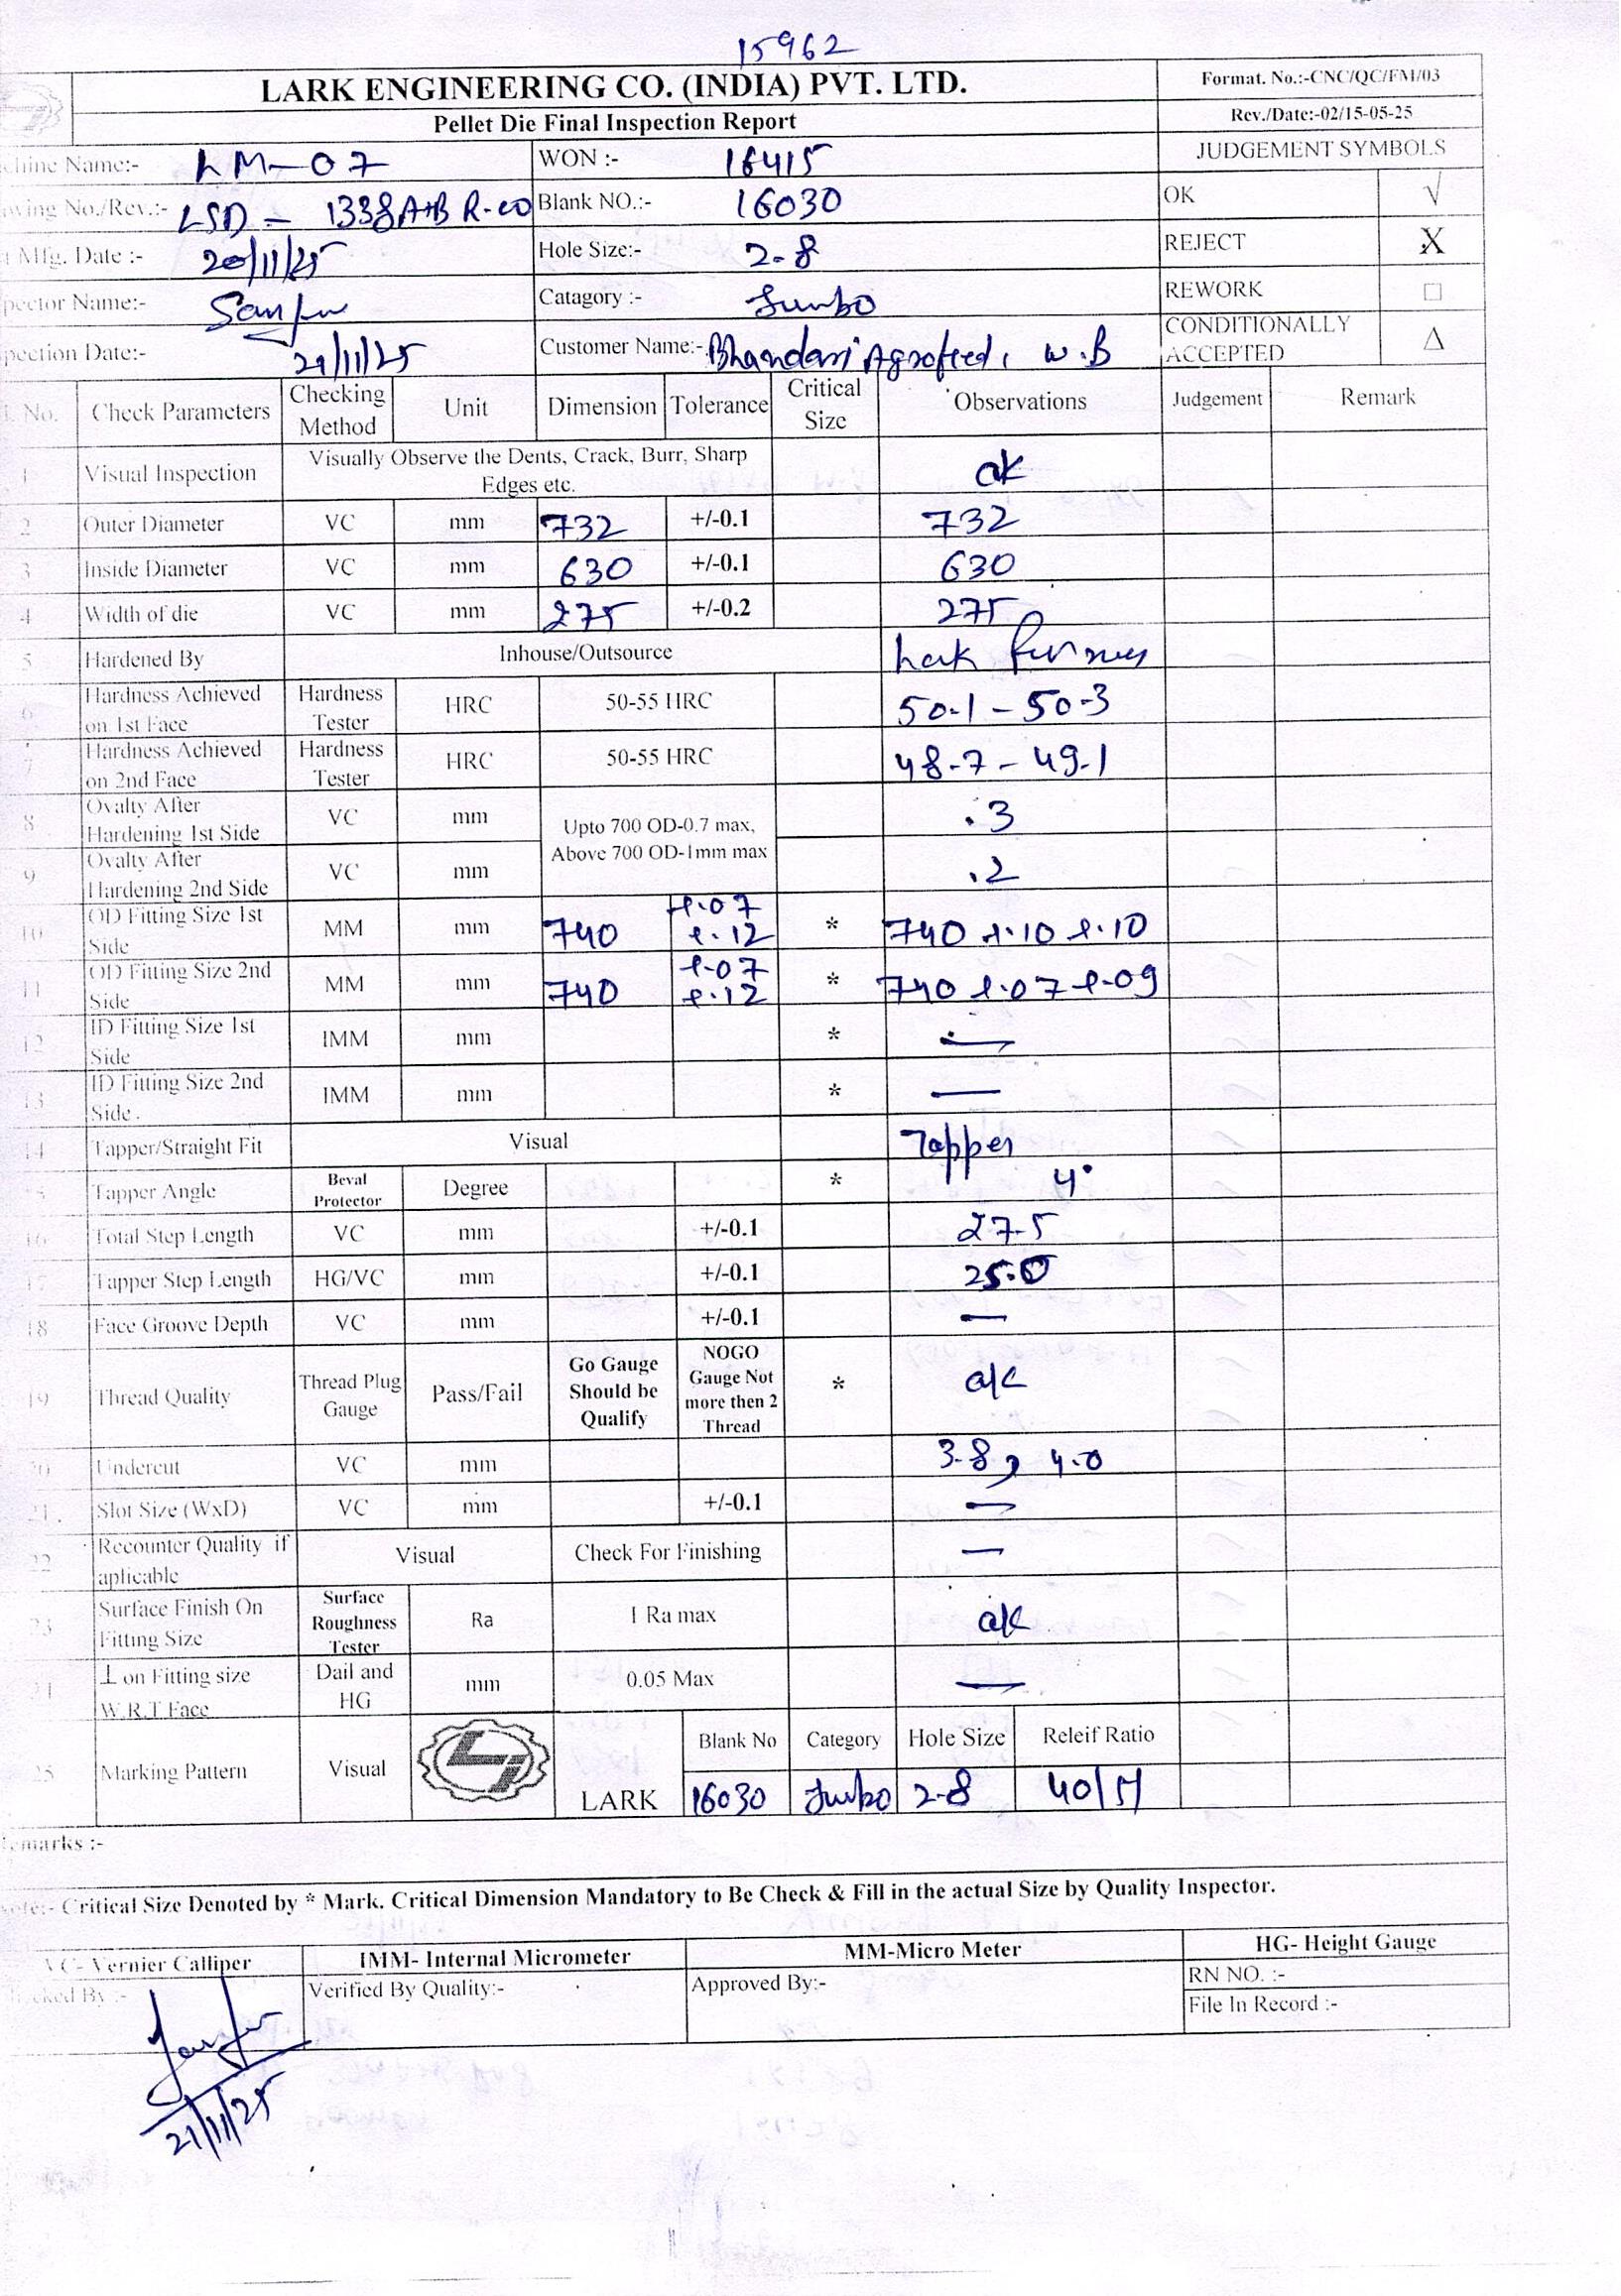 15962
LARK ENGINEERING CO. (INDIA) PVT. LTD.
Format. No.:-CNC/QC/FM/03
Pellet Die Final Inspection Report
Rev./Date:-02/15-05-25
chine Name:- LM-07 WON :- 16415 JUDGEMENT SYMBOLS
wing No./Rev.:- LSD - 1338A+B R-00 Blank NO.:- 16030 OK √
Mfg. Date :- 20/11/25 Hole Size:- 2.8 REJECT X
pector Name:- Catagory :- Jumbo REWORK □
pection Date:- 21/11/25 Customer Name:- Bhandari Agrofeed, W.B CONDITIONALLY ACCEPTED Δ
No. Check Parameters Checking Method Unit Dimension Tolerance Critical Size Observations Judgement Remark
1 Visual Inspection Visually Observe the Dents, Crack, Burr, Sharp Edges etc. ok
2 Outer Diameter VC mm 732 +/-0.1 732
3 Inside Diameter VC mm 630 +/-0.1 630
4 Width of die VC mm 275 +/-0.2 275
5 Hardened By Inhouse/Outsource Lark
6 Hardness Achieved on 1st Face Hardness Tester HRC 50-55 HRC 50.1 - 50.3
7 Hardness Achieved on 2nd Face Hardness Tester HRC 50-55 HRC 48.7 - 49.1
8 Ovalty After Hardening 1st Side VC mm Upto 700 OD-0.7 max, Above 700 OD-1mm max .3
9 Ovalty After Hardening 2nd Side VC mm .2
10 OD Fitting Size 1st Side MM mm 740 +.07 +.12 * 740 +.10 +.10
11 OD Fitting Size 2nd Side MM mm 740 +.07 +.12 * 740 +.07 +.09
12 ID Fitting Size 1st Side IMM mm * —
13 ID Fitting Size 2nd Side . IMM mm * —
14 Tapper/Straight Fit Visual Tapper
15 Tapper Angle Beval Protector Degree * 4°
16 Total Step Length VC mm +/-0.1 27.5
17 Tapper Step Length HG/VC mm +/-0.1 25.0
18 Face Groove Depth VC mm +/-0.1 —
19 Thread Quality Thread Plug Gauge Pass/Fail Go Gauge Should be Qualify NOGO Gauge Not more then 2 Thread * o/k
20 Undercut VC mm 3.8, 4.0
21. Slot Size (WxD) VC mm +/-0.1 —
22 Recounter Quality if aplicable Visual Check For Finishing —
23 Surface Finish On Fitting Size Surface Roughness Tester Ra 1 Ra max o/k
24 ⊥ on Fitting size W.R.T Face Dail and HG mm 0.05 Max —
25 Marking Pattern Visual LARK Blank No Category Hole Size Releif Ratio
16030 Jumbo 2.8
emarks :-
ote:- Critical Size Denoted by * Mark. Critical Dimension Mandatory to Be Check & Fill in the actual Size by Quality Inspector.
VC- Vernier Calliper IMM- Internal Micrometer MM-Micro Meter HG- Height Gauge
cked By :- Verified By Quality:- Approved By:- RN NO. :-
File In Record :-
21/11/25